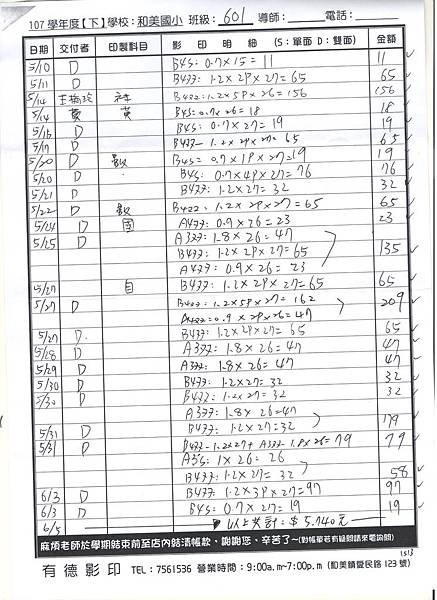 107學年度【下】學校：和美國小 班級：601 導師：______電話：______
日期 交付者 印製科目 影 印 明 細 (S：單面 D：雙面) 金額
5/10 D B4S: 0.7×15=11 11
5/11 D B4雙: 1.2×2P×27=65 65
5/14 B4雙: 1.2×5P×26=156 156
5/14 黃 英 B4S: 0.7×26=18 18
5/16 D B4S: 0.7×27=19 19
5/17 D B4雙- 1.2×2P×27=65 65
5/20 D 數 B4S= 0.7×1P×27=19 19
5/20 D B4S: 0.7×4P×27=76 76
5/21 D B4雙: 1.2×27=32 32
5/22 D 數 B4雙: 1.2×2P×27=65 65
5/24 D 國 A4雙: 0.9×26=23 23
5/25 D A3雙: 1.8×26=47
B4雙: 1.2×2P×27=65 135
A4雙: 0.9×26=23
5/27 自 B4雙: 1.2×2P×27=65 65
5/27 D B4雙: 1.2×5P×27=162 209
A4雙=0.9×2P×26=47
5/27 D. B4雙: 1.2×2P×27=65 65
5/28 D A3雙: 1.8×26=47 47
5/29 D A3雙: 1.8×26=47 47
5/30 D B4雙: 1.2×27=32 32
5/30 D B4雙: 1.2×27=32 32
A3雙: 1.8×26=47
5/31 D B4雙: 1.2×27=32 79
5/31 D B4雙-1.2×27+ A3雙-1.8×26=79 79
A3S: 1×26=26
B4雙: 1.2×27=32 58
6/3 D B4雙: 1.2×3P×27=97 97
6/3 D B4S: 0.7×27=19 19
6/5 以上共計: $ 5,740元
麻煩老師於學期結束前至店內結清帳款，謝謝您，辛苦了~(對帳單若有疑問請來電詢問)
1513
有德影印 TEL：7561536 營業時間：9:00a.m~7:00p.m (和美鎮愛民路 123 號)